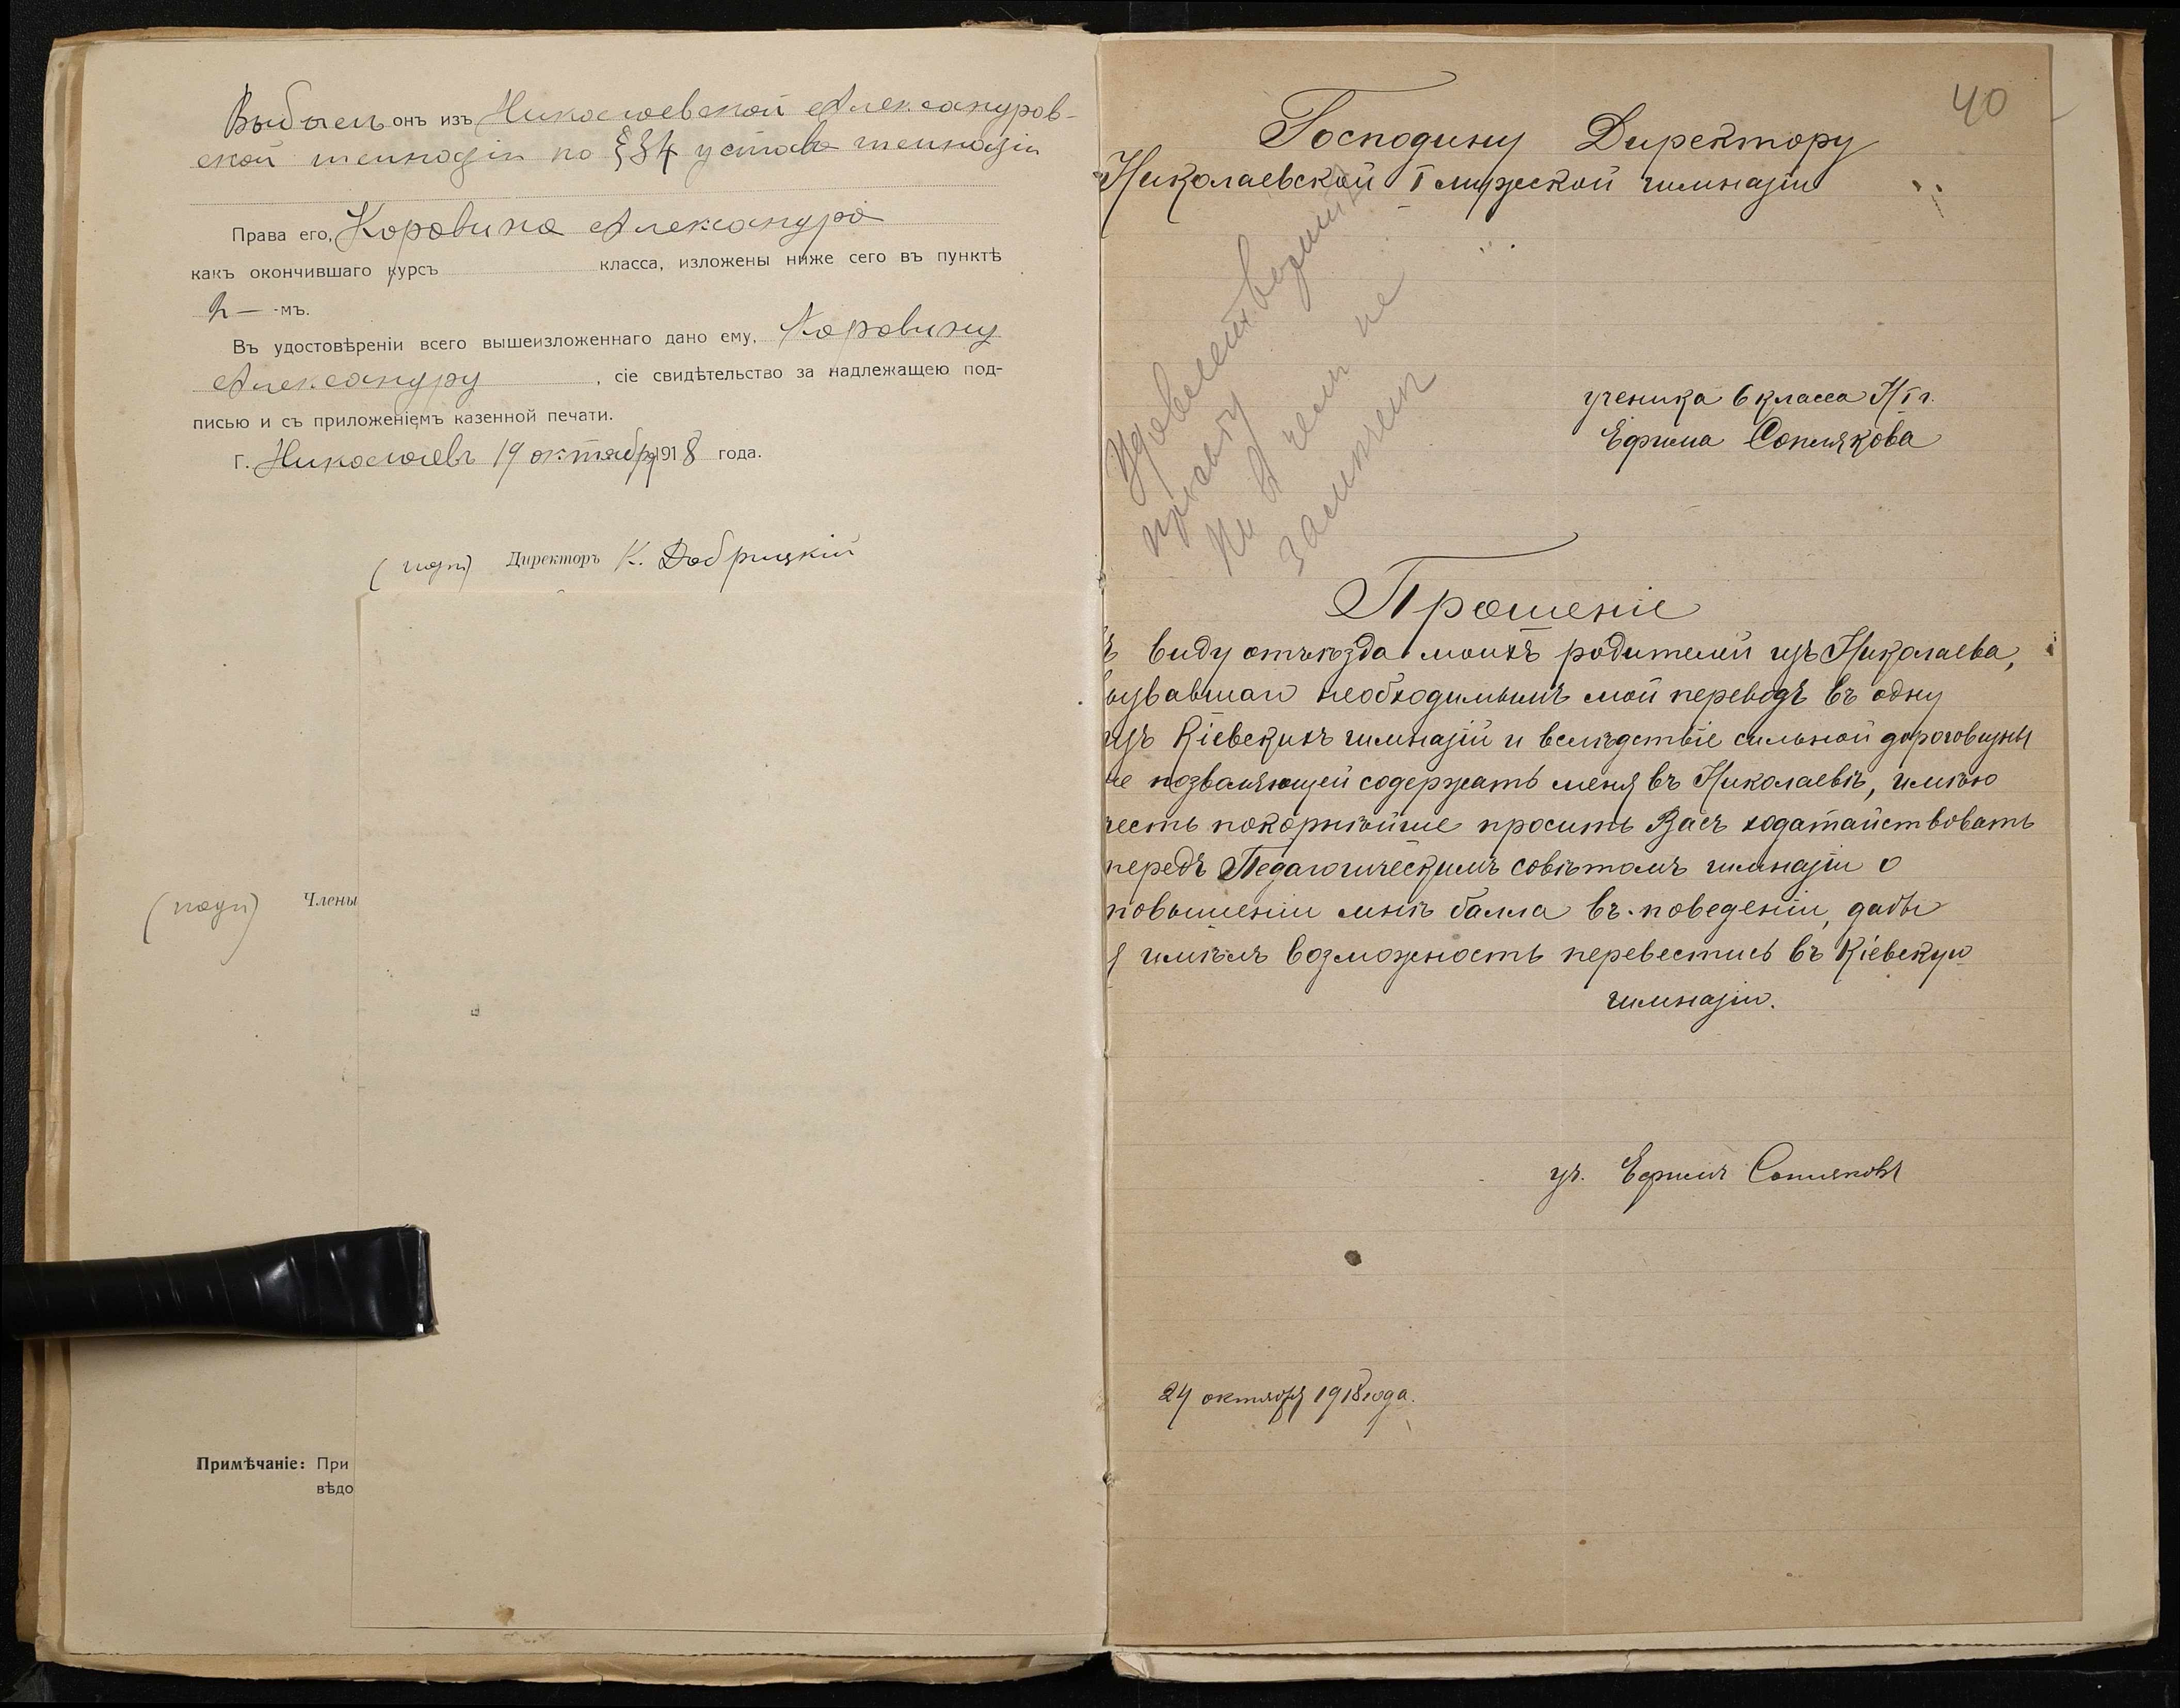 Выбылъ онъ изъ Николаевской Александров-
ской гимназіи по § 34 устава гимназіи
Права его, Коровина Александра
какъ окончившаго курсъ класса, изложены ниже сего въ пунктѣ
2 — -мъ.
Въ удостовѣреніи всего вышеизложеннаго дано ему, Коровину
Александру , сіе свидѣтельство за надлежащею под-
писью и съ приложеніемъ казенной печати.
г. Николаевъ 19 октября 1918 года.
(подп) Директоръ К. Добрицкій
(подп) Члены
Примѣчаніе: При
вѣдо
40
Господину Директору
Николаевской I мужской гимназіи
ученика 6 класса Н I г.
Ефима
Удовлетв
ни в чем не
замѣчен
Прошеніе
ъ виду отъѣзда моихъ родителей изъ Николаева,
ызвавшаго необходимымъ мой переводъ въ одну
изъ Кіевскихъ гимназій и вслѣдствіе сильной дороговизны
не позваляющей содержать меня въ Николаевѣ, имѣю
честь покорнѣйше просить Васъ ходатайствовать
передъ Педагогическимъ совѣтомъ гимназіи о
повышеніи мнѣ балла въ поведеніи, дабы
я имѣлъ возможность перевестись въ Кіевскую
гимназію.
уч. Ефимъ
24 октября 1918 года.